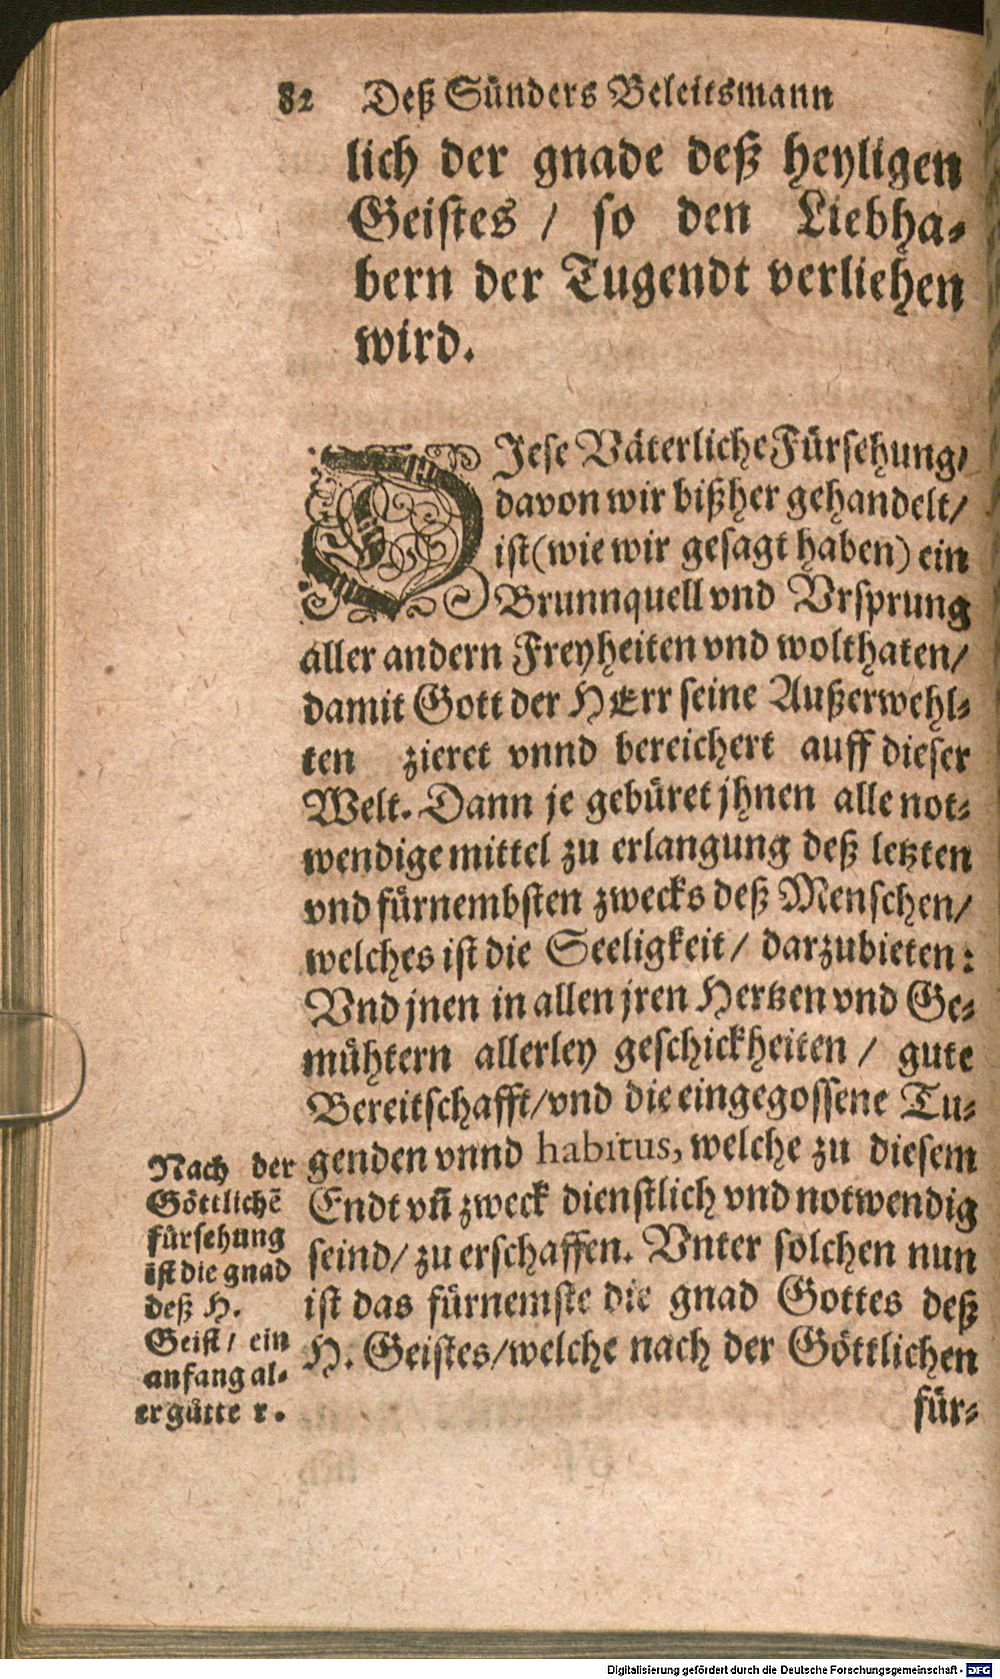 82 Deß Sünders Beleitsmann
lich der gnade deß heyligen
Geistes / so den Liebha-
bern der Tugendt verliehen
wird.
DIese Väterliche Fürsehung/
davon wir bißher gehandelt/
ist (wie wir gesagt haben) ein
Brunnquell vnd Vrsprung
aller andern Freyheiten vnd wolthaten/
damit Gott der HErr seine Außerwehl-
ten zieret vnnd bereichert auff dieser
Welt. Dann je gebüret jhnen alle not-
wendige mittel zu erlangung deß letzten
vnd fürnembsten zwecks deß Menschen/
welches ist die Seeligkeit / darzubieten:
Vnd jnen in allen jren Hertzen vnd Ge-
mühtern allerley geschickheiten / gute
Bereitschafft/vnd die eingegossene Tu-
genden vnnd habitus, welche zu diesem
Endt vñ zweck dienstlich vnd notwendig
seind/ zu erschaffen. Vnter solchen nun
ist das fürnemste die gnad Gottes deß
H. Geistes/welche nach der Göttlichen
für-
Nach der
Göttlichẽ
fürsehung
ist die gnad
deß H.
Geist/ ein
anfang al-
er gütte r.
Digitalisierung gefördert durch die Deutsche Forschungsgemeinschaft - DFG